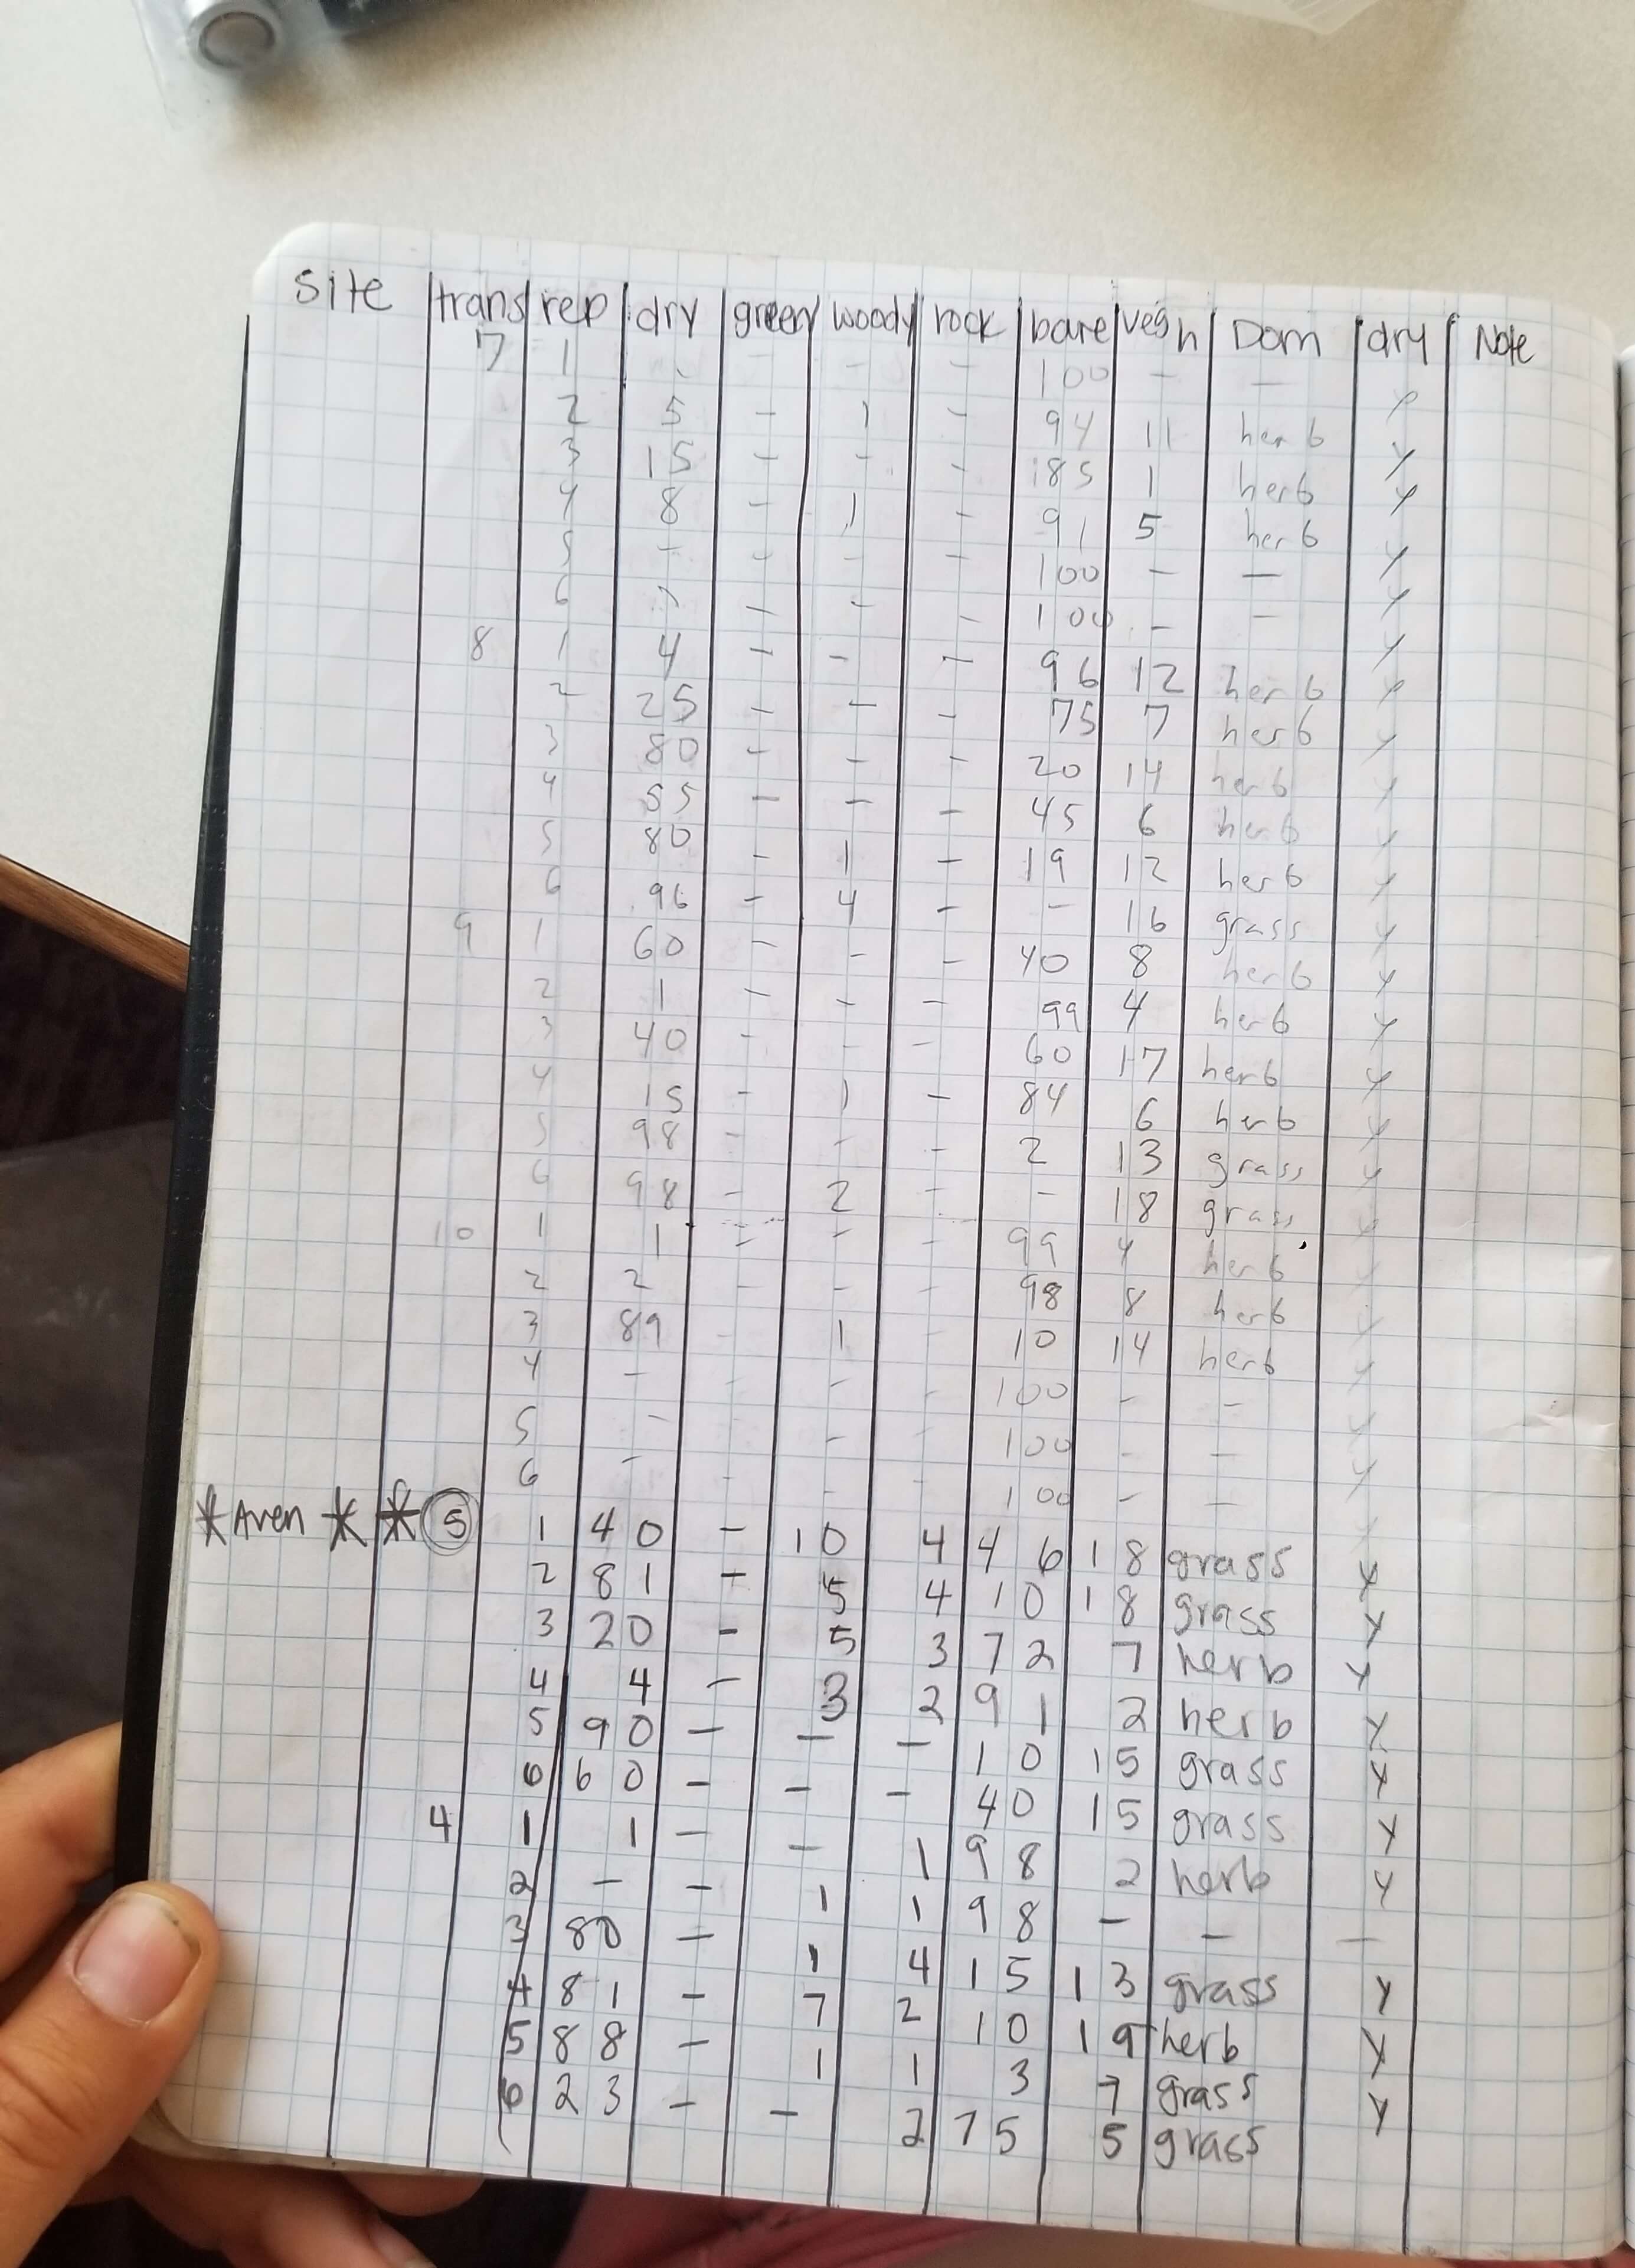 site trans rep dry green woody rock bare vegh Dom dry Note
7 1 - - - - 100 - - y
2 5 - 1 - 94 11 herb y
3 15 - - - 85 1 herb y
4 8 - 1 - 91 5 herb y
5 - - - - 100 - - y
6 - - - - 100 - - y
8 1 4 - - - 96 12 herb y
2 25 - - - 75 7 herb y
3 80 - - - 20 14 herb y
4 55 - - - 45 6 herb y
5 80 - 1 - 19 12 herb y
6 96 - 4 - - 16 grass y
9 1 60 - - - 40 8 herb y
2 1 - - - 99 4 herb y
3 40 - - - 60 17 herb y
4 15 - 1 - 84 6 herb y
5 98 - - - 2 13 grass y
6 98 - 2 - - 18 grass y
10 1 1 - - - 99 4 herb y
2 2 - - - 98 8 herb y
3 89 - 1 - 10 14 herb y
4 - - - - 100 - - y
5 - - - - 100 - - y
6 - - - - 100 - - y
*Aven * * 5 1 40 - 10 4 46 18 grass y
2 81 - 5 4 10 18 grass y
3 20 - 5 3 72 7 herb y
4 4 - 3 2 91 2 herb y
5 90 - - - 10 15 grass y
6 60 - - - 40 15 grass y
4 1 1 - - 1 98 2 herb y
2 - - 1 1 98 - - -
3 80 - 1 4 15 13 grass y
4 81 - 7 2 10 19 herb y
5 88 - 1 1 3 7 grass y
6 23 - - 2 75 5 grass